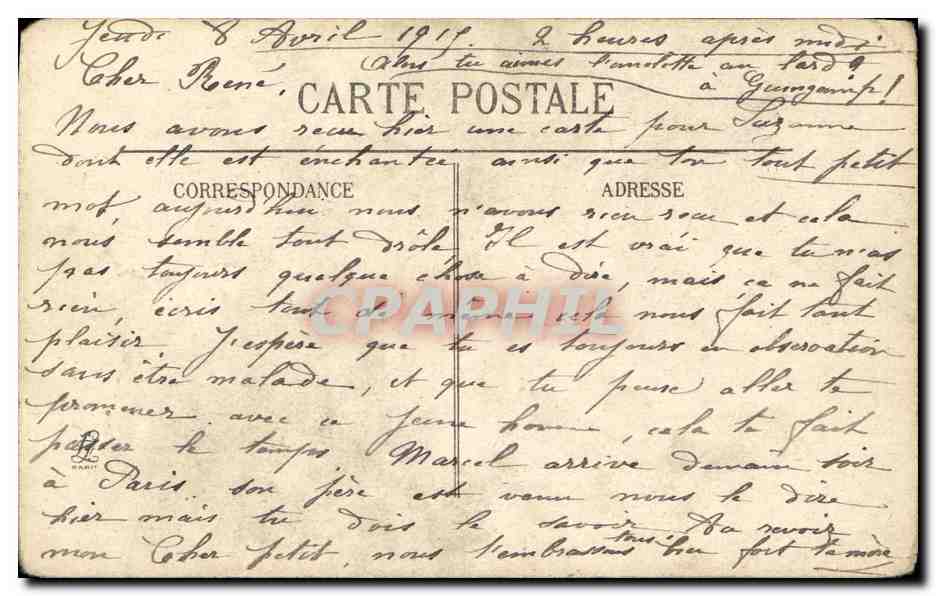 Jeudi 8 Avril 1915 2 heures après midi
Cher René, Alors tu aimes l'omelette au lard
à Guingamp!
CARTE POSTALE
Nous avons recu hier une carte pour Suzanne
dont elle est énchantée ainsi que ton tout petit
CORRESPONDANCE ADRESSE
mot, aujourd'hui nous n'avons rien recu et cela
nous semble tout drôle Il est vrai que tu n'as
pas toujours quelque chose à dire, mais ca ne fait
rien, écris tout de même cela nous fait tant
CPAPHIL
plaisir. J'espère que tu es toujours en observation
sans être malade, et que tu peux aller te
promener avec ce jeune homme, cela te fait
passer le temps Marcel arrive demain soir
PARIS
à Paris son père est venu nous le dire
hier mais tu dois le savoir Au revoir
mon Cher petit, nous t'embrassons tous bien fort ta mère